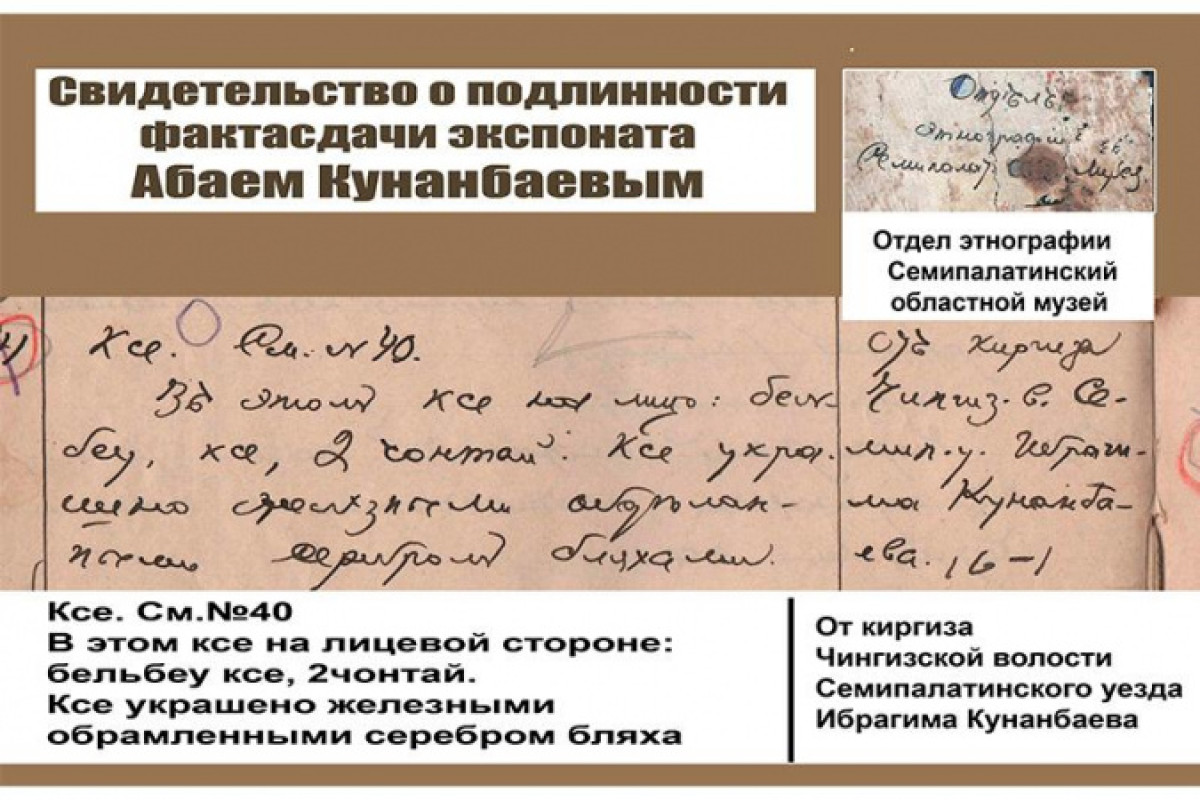 Свидетельство о подлинности
фактасдачи экспоната
Абаем Кунанбаевым
Отдѣлъ
этнографіи
Семипалат. Музея
Отдел этнографии
Семипалатинский
областной музей
Ксе. См. № 40.
Въ этомъ ксе лицо: бель-
беу, ксе, 2 чонтай. Ксе укра-
шено желѣзными обдѣлан-
ными серебромъ бляхами.
Отъ киргиза
Чингиз. в. Се-
мип. у. Ибраги-
ма Кунанба-
ева. 16-1
Ксе. См.№40
В этом ксе на лицевой стороне:
бельбеу ксе, 2чонтай.
Ксе украшено железными
обрамленными серебром бляха
От киргиза
Чингизской волости
Семипалатинского уезда
Ибрагима Кунанбаева